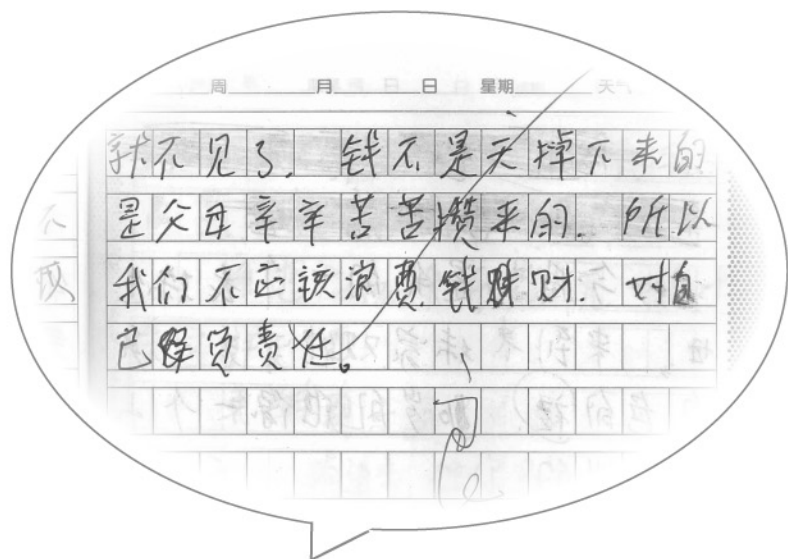 周 月 日 日 星期 天
就不见了. 钱不是天掉下来的
是父母辛辛苦苦攒来的. 所以
我们不应该浪费钱财. 对自
己负责任。